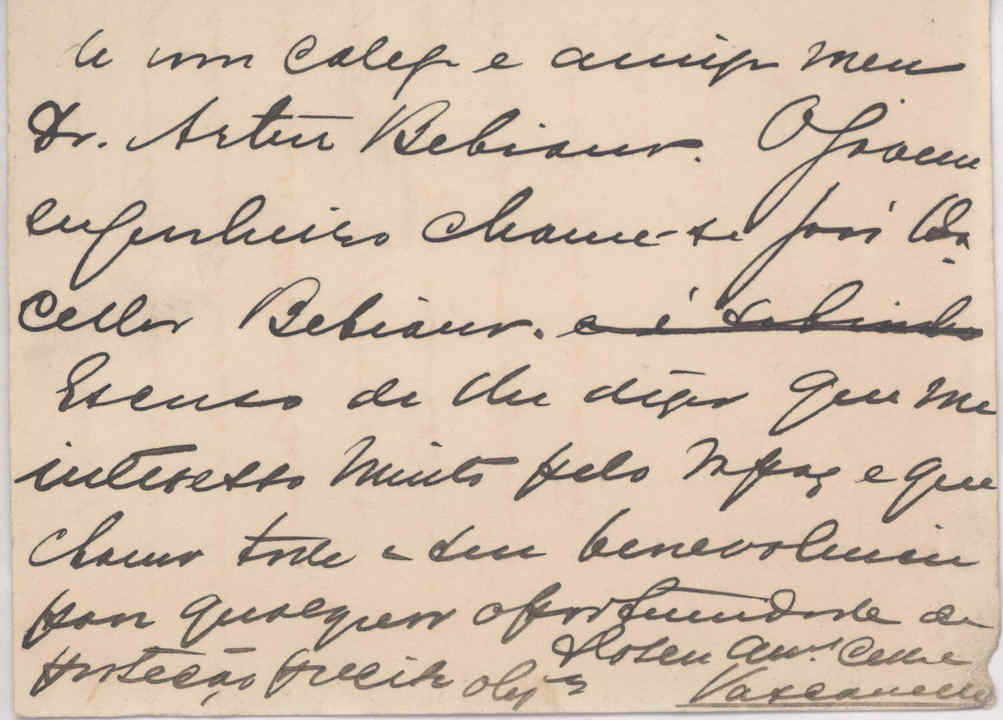 de um colega e amigo meu
Dr. Artur Bebiano. O jovem
engenheiro chama-se José Ba
cellar Bebiano. e é
Escuso de lhe dizer que me
interesso muito pelo rapaz e que
chamo toda a sua benevolencia
para qualquer oportunidade de
proteção
Vasconcellos